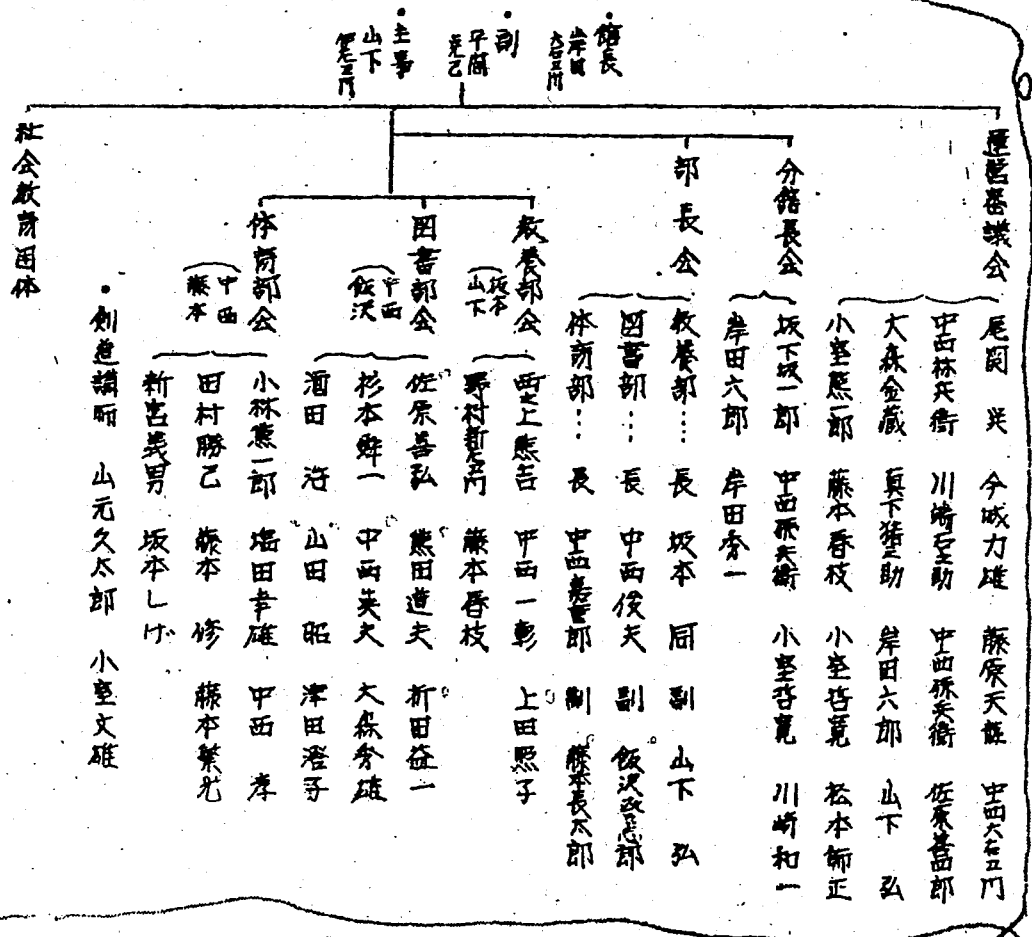 館長
岸田
大右エ門
・副
平岡
克己
・主事
山下
運営審議会
尾関 算 今城力雄 藤原天龍 中西大右エ門
中西林兵衛 川崎石之助 中西孫兵衛 佐原善四郎
大森金蔵 真下猪之助 岸田六郎 山下 弘
小室熊一郎 藤本春枝 小室啓寛 松本師正
分館長会
坂下坂一郎 中西孫兵衛 小室啓寛 川崎和一
岸田六郎 岸田秀一
部長会
教養部… 長 坂本 同 副 山下 弘
図書部… 長 中西俊夫 副 飯沢政志郎
体育部… 長 中西嘉重郎 副 藤本長太郎
教養部会
(坂本
山下)
西之上熊吉 中西一彰 上田照子
野村新左エ門 藤本春枝
図書部会
(中西
飯沢)
佐原善弘 熊田道夫 折田益一
杉本舜一 中西英夫 大森秀雄
酒田 治 山田 昭 津田澄子
体育部会
(中西
藤本)
小林熊一郎 塩田幸雄 中西 孝
田村勝己 藤本 修 藤本繁光
新宮義男 坂本しげ
・剣道講師 山元久太郎 小室文雄
社会教育団体